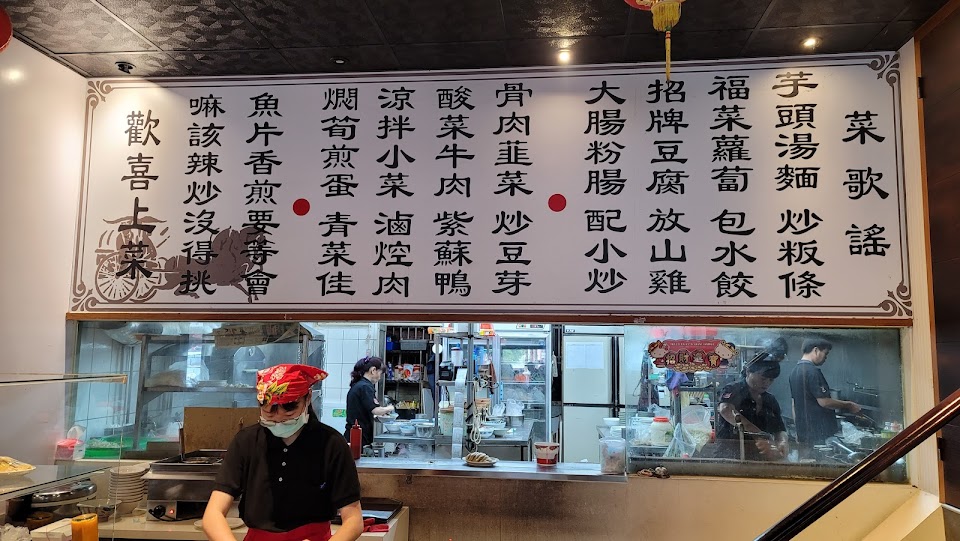 菜歌謠
芋頭湯麵 炒粄條
福菜蘿蔔 包水餃
招牌豆腐 放山雞
大腸粉腸 配小炒
骨肉韮菜 炒豆芽
酸菜牛肉 紫蘇鴨
涼拌小菜 滷焢肉
燜筍煎蛋 青菜佳
魚片香煎要等會
嘛該辣炒沒得挑
歡喜上菜